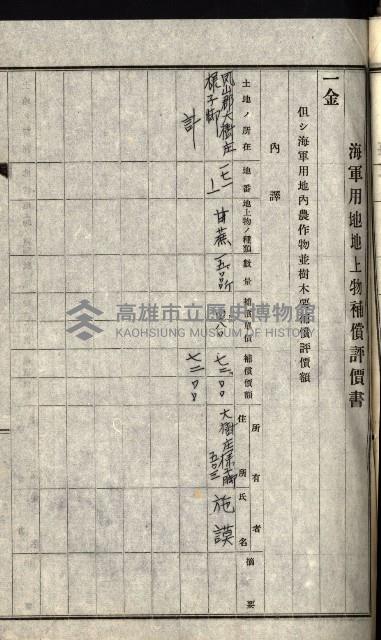 海軍用地地上物補償評價書
一金
但シ海軍用地內農作物並樹木要補償評價額
內譯
土地ノ所在 地番 地上物ノ種類 數量 補償單價 補償價額 所有者 住所 氏名 摘要
鳳山郡大樹庄 樣子脚 甘蔗 七二〇〇 大樹庄樣子脚 施謨
計 七二〇〇
高雄市立歷史博物館
KAOHSIUNG MUSEUM OF HISTORY